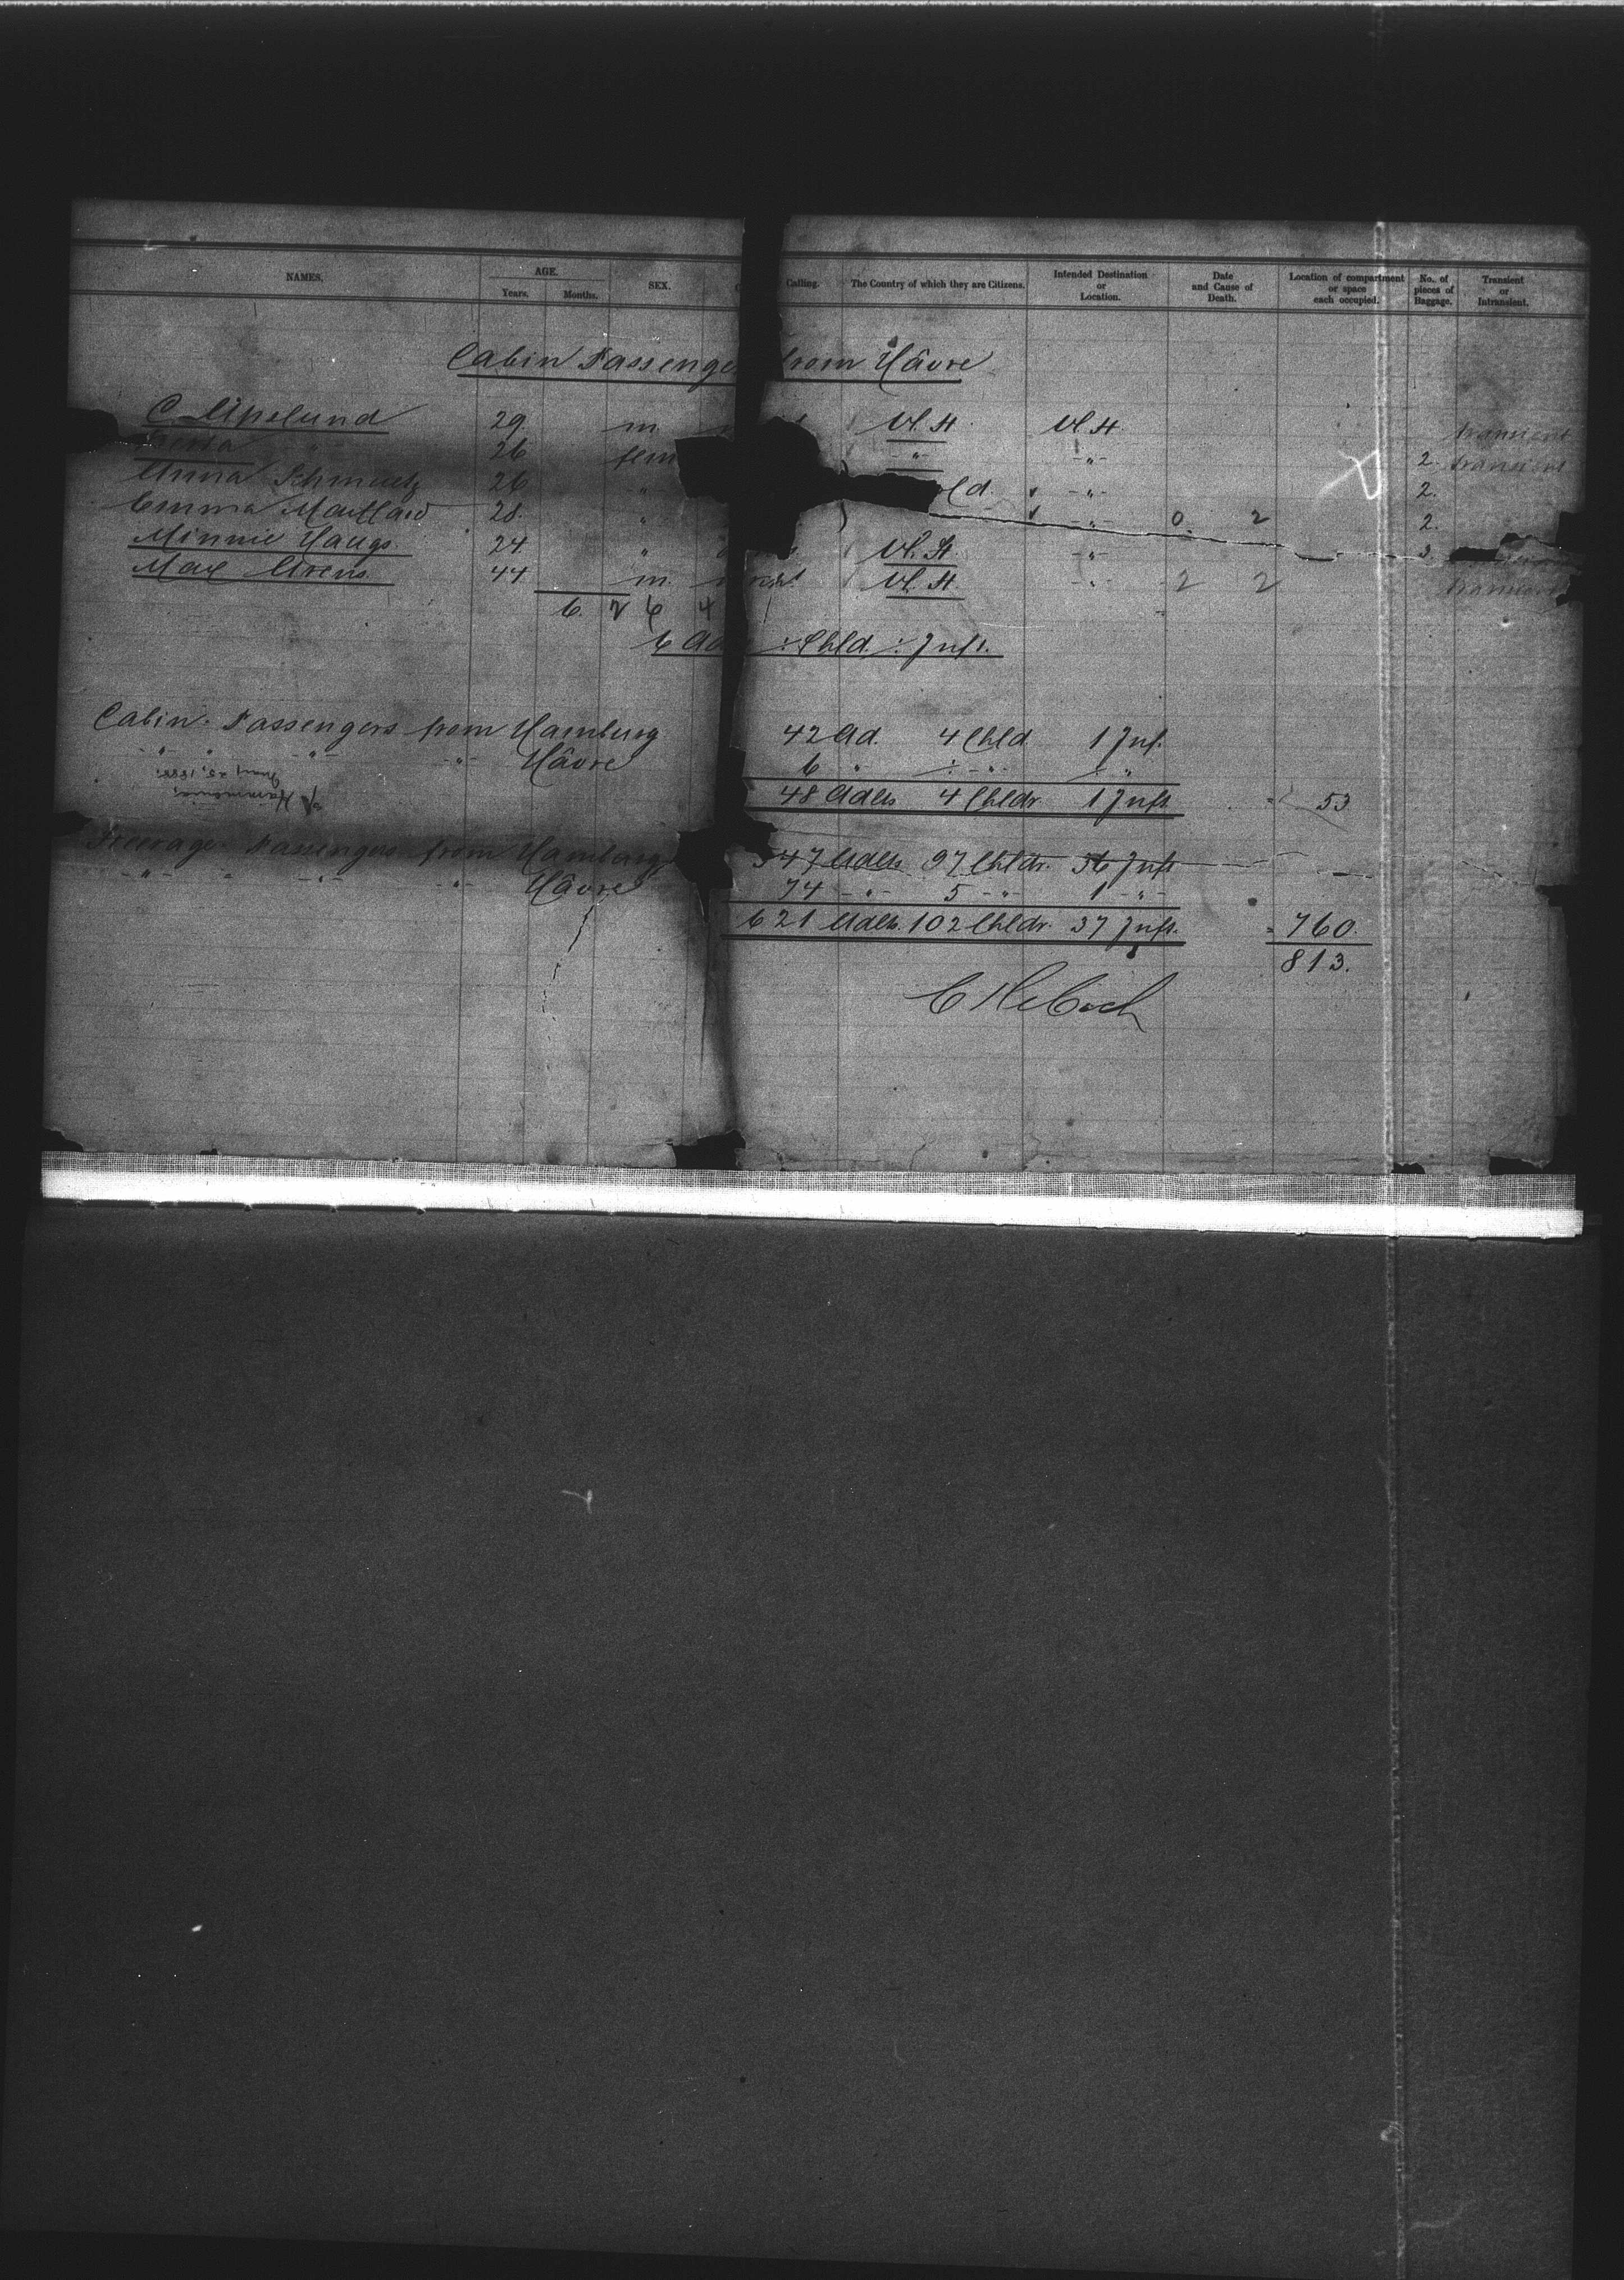 NAMES. AGE. Years. Months. SEX. Calling. The Country of which they are Citizens. Intended Destination or Location. Date and Cause of Death. Location of compartment or space each occupied. No. of pieces of Baggage. Transient or Intransient.
Cabin Passenge from Hâvre
29 m. U.St. U.St. transient
" 26 fem -"- -"- 2. transient
Anna Schmuetz 26 " ld. -"- 2.
Emma 28. " -"- 0 2 2.
Minnie Haugs. 24 " U.St. -"- 3.
Max Arens 44 m. U.St. -"- 2 2 transient
6. 2 6 4
6 Ad ÷ Chld. ÷ Inft.
Cabin Passengers from Hamburg 42 Ad. 4 Chld 1 Inf.
-"- -"- -"- Hâvre 6 " ÷ -"- ÷ "
48 Adlts 4 Chldr. 1 Inft. = 53
s/s Hammonia,
1888.
Steerage Passengers from Hamburg 547 Adlts. 97 Chldr. 36 Inft
-"- " -"- -"- Hâvre 74 -"- 5 -"- 1 -"-
621 Adlts. 102 Chldr. 37 Inft. = 760.
813.